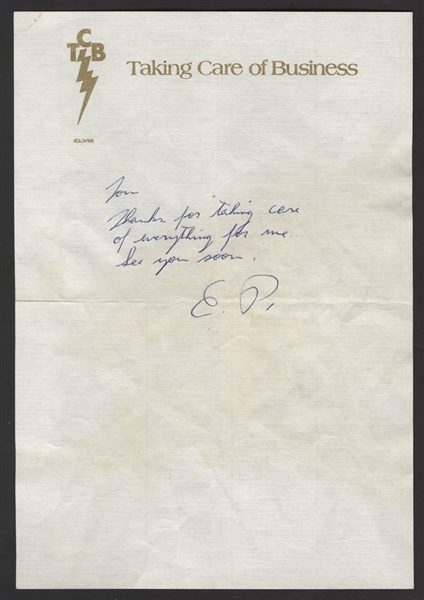 TCB
Taking Care of Business
ELVIS
Tom
Thanks for taking care
of everything for me.
See you soon,
E. P.